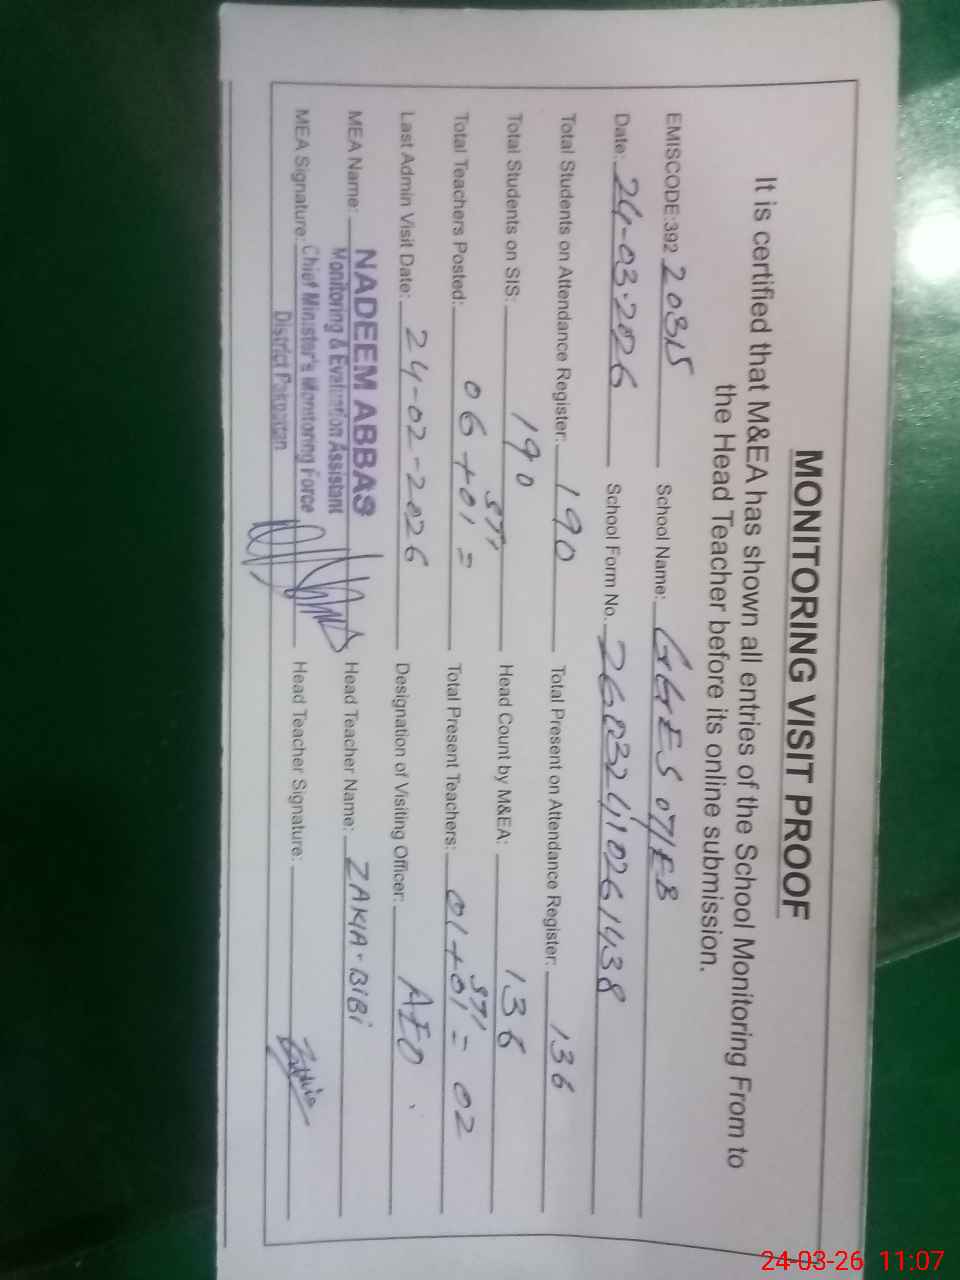 MONITORING VISIT PROOF
It is certified that M&EA has shown all entries of the School Monitoring From to
the Head Teacher before its online submission.
EMISCODE:392 20315 School Name: GGES 07/EB
Date: 24-03-2026 School Form No. 260324110261438
Total Students on Attendance Register: 190 Total Present on Attendance Register: 136
Total Students on SIS: 190 Head Count by M&EA: 136
STI STI
Total Teachers Posted: 06+01= Total Present Teachers: 01+01= 02
Last Admin Visit Date: 24-02-2026 Designation of Visiting Officer: AEO
MEA Name: NADEEM ABBAS Head Teacher Name: ZAKIA-BiBi
Monitoring & Evaluation Assistant
MEA Signature: Chief Minister's Monitoring Force Head Teacher Signature:
District Pakpattan
24-03-26 11:07